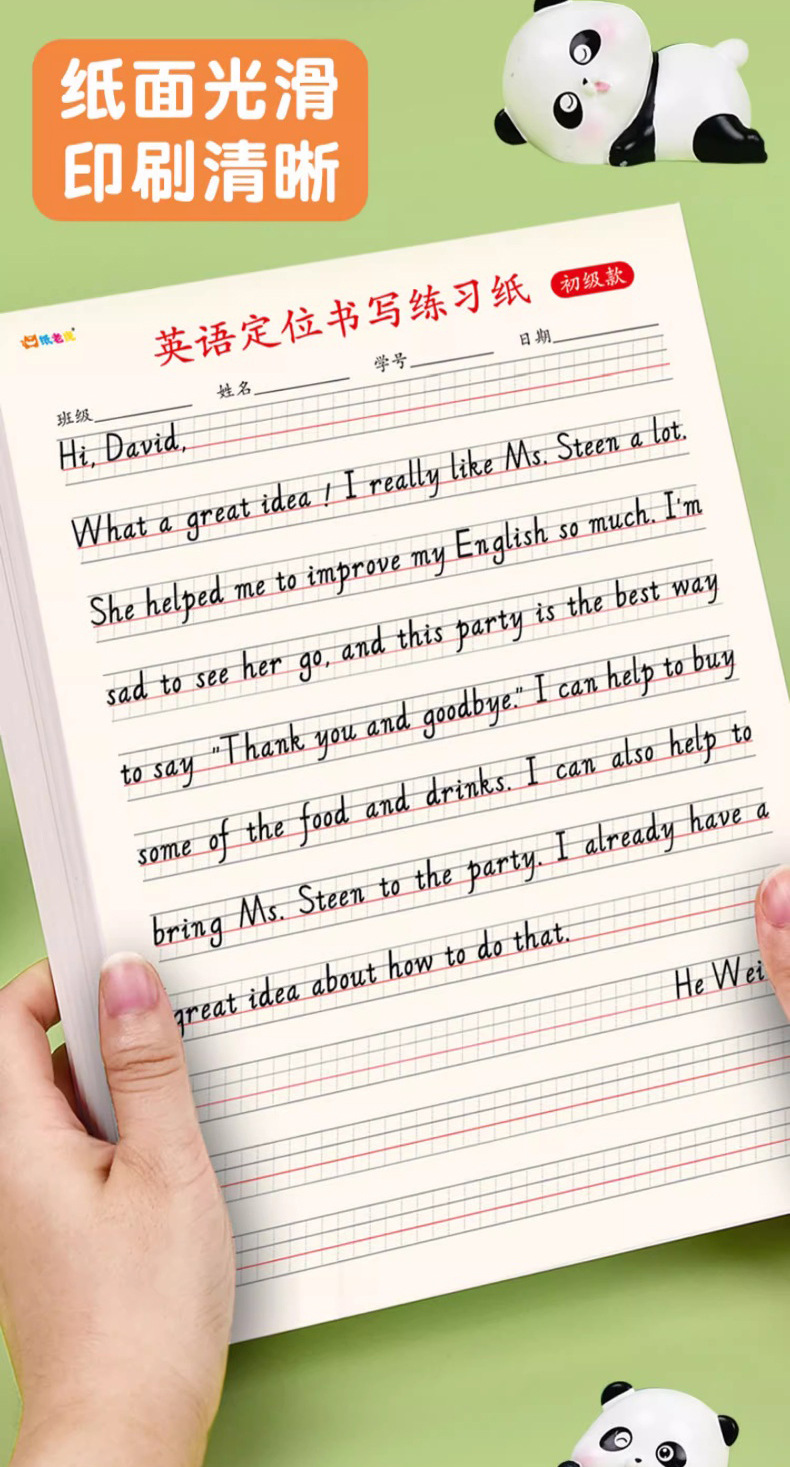 纸面光滑
印刷清晰
纸老虎
英语定位书写练习纸
初级款
班级 姓名 学号 日期
Hi, David,
What a great idea ! I really like Ms. Steen a lot.
She helped me to improve my English so much. I'm
sad to see her go, and this party is the best way
to say "Thank you and goodbye." I can help to buy
some of the food and drinks. I can also help to
bring Ms. Steen to the party. I already have a
great idea about how to do that.
He Wei